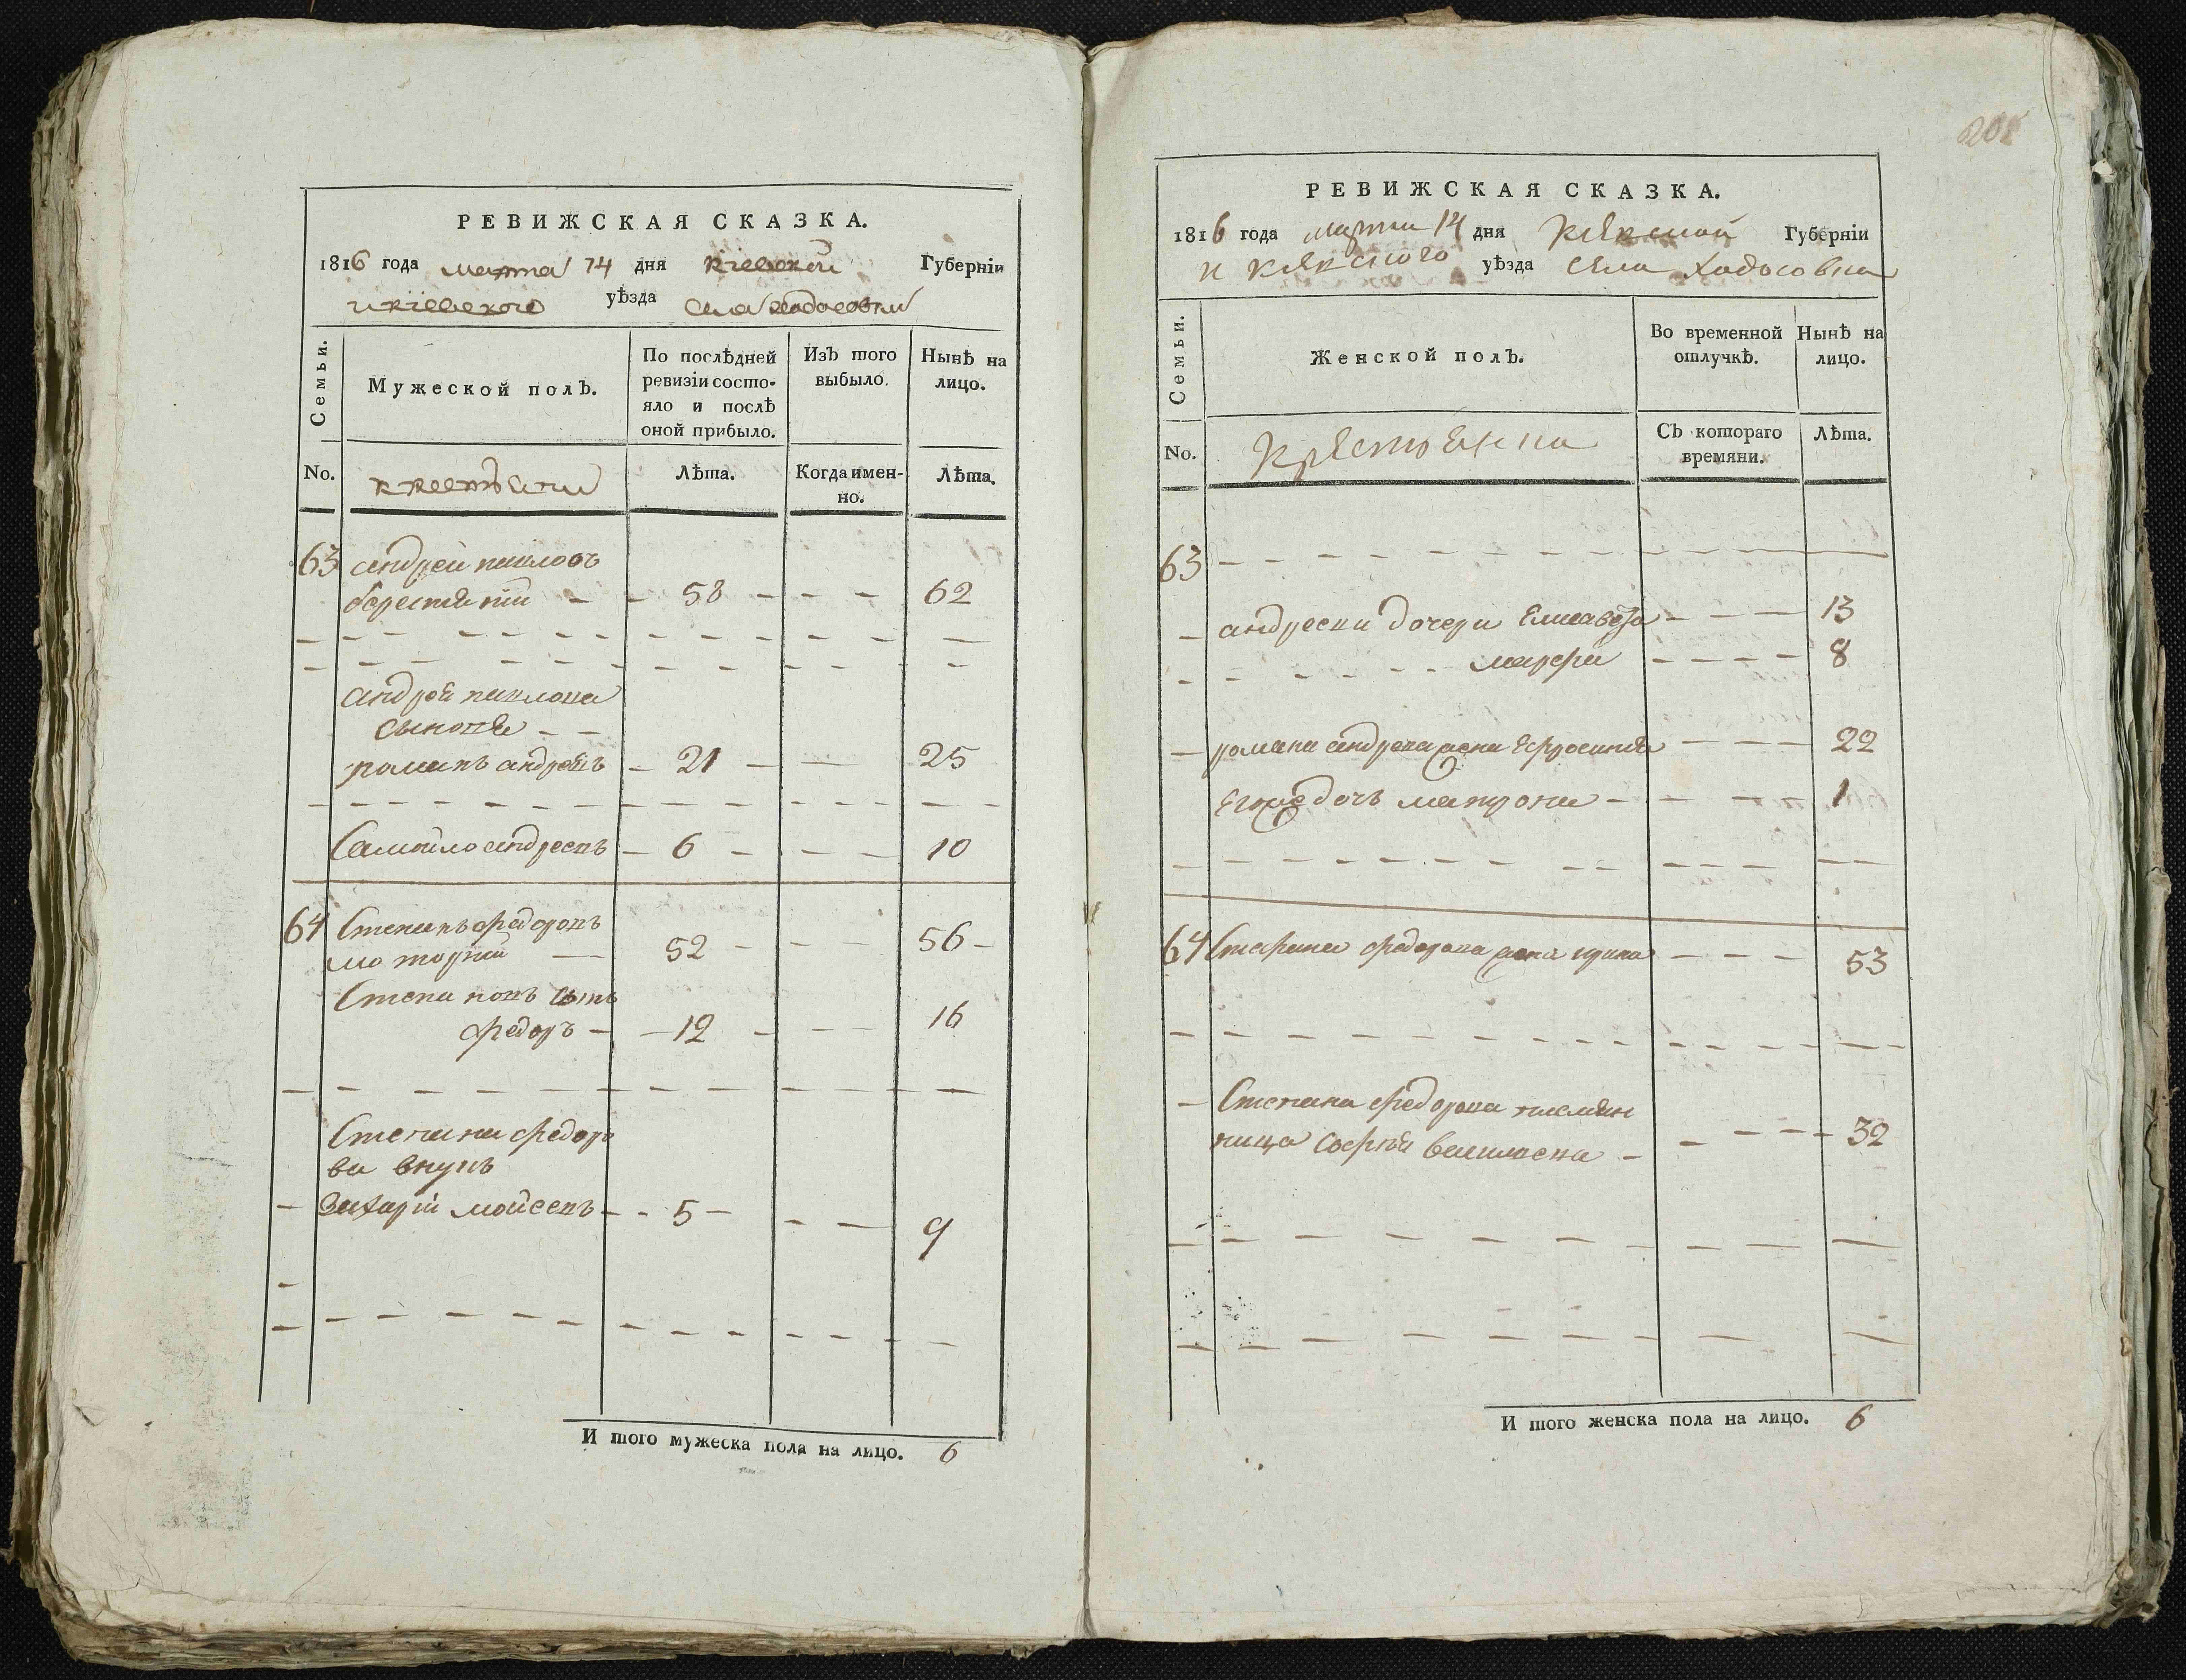 РЕВИЖСКАЯ СКАЗКА.
1816 года марта 14 дня киевской Губерніи
и киевского уѣзда села ходосовки
Семьи.
Мужеской полъ.
По послѣдней ревизіи состо-
яло и послѣ
оной прибыло.
Изъ того
выбыло.
Нынѣ на
лицо.
No.
крестьяни
Лѣта.
Когда имен-
но.
Лѣта.
63 андрей павловъ
58 62
андрея павлова
сыновья
романъ андреевъ 21 25
Самойло андреевъ 6 10
64 Степанъ федоровъ
моторний 52 56
Степановъ сынъ
федоръ 12 16
Степана федоро
ва внукъ
Захарій мойсеевъ 5 9
И того мужеска пола на лицо. 6
РЕВИЖСКАЯ СКАЗКА.
1816 года марта 14 дня киевской Губерніи
и киевского уѣзда села ходосовки
Семьи.
Женской полъ.
Во временной
отлучкѣ.
Нынѣ на
лицо.
No.
Съ котораго
времяни.
Лѣта.
63
андреевы дочери Елисавета 13
марфа 8
романа андреева жена Ефросинія 22
Егоже дочь матрона 1
64 Степана федорова жена ирина 53
Степана федорова племян
ница софія василиева 32
И того женска пола на лицо. 6